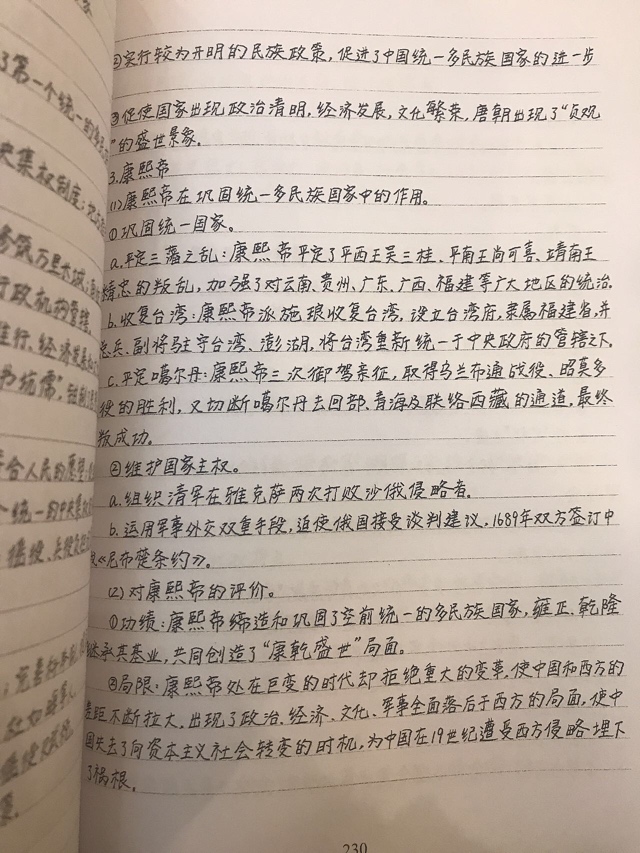 ②实行较为开明的民族政策，促进了中国统一多民族国家的进一步
③促使国家出现政治清明，经济发展，文化繁荣，唐朝出现了“贞观
”的盛世景象。
3.康熙帝
(1)康熙帝在巩固统一多民族国家中的作用。
①巩固统一国家。
a.平定三藩之乱：康熙帝平定了平西王吴三桂、平南王尚可喜、靖南王
精忠的叛乱，加强了对云南、贵州、广东、广西、福建等广大地区的统治。
b.收复台湾：康熙帝派施琅收复台湾，设立台湾府，隶属福建省，并
总兵、副将驻守台湾、澎湖，将台湾重新统一于中央政府的管辖之下。
c.平定噶尔丹：康熙帝三次御驾亲征，取得乌兰布通战役、昭莫多
役的胜利，又切断噶尔丹去回部、青海及联络西藏的通道，最终
叛成功。
②维护国家主权。
a.组织清军在雅克萨两次打败沙俄侵略者。
b.运用军事外交双重手段，迫使俄国接受谈判建议，1689年双方签订中
《尼布楚条约》。
(2)对康熙帝的评价。
①功绩：康熙帝缔造和巩固了空前统一的多民族国家，雍正、乾隆
继承其基业，共同创造了“康乾盛世”局面。
②局限：康熙帝处在巨变的时代却拒绝重大的变革，使中国和西方的
差距不断拉大，出现了政治、经济、文化、军事全面落后于西方的局面，使中
国失去了向资本主义社会转变的时机，为中国在19世纪遭受西方侵略埋下
了祸根。
230